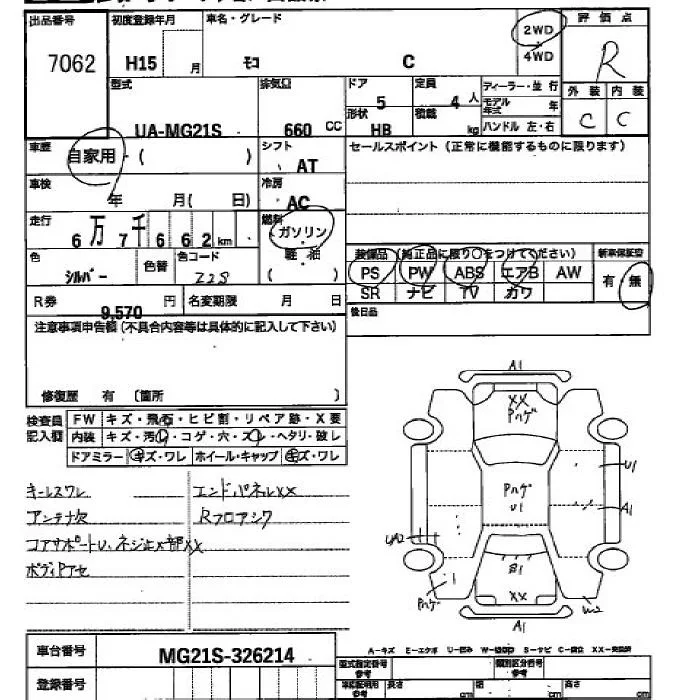 出品番号 初度登録年月 車名・グレード 2WD 4WD 評価点
7062 H15 月 モコ C R
型式 排気量 ドア 定員 ディーラー・並行 外装 内装
UA-MG21S 660 CC 5 4人 モデル年式 年 C C
形状 HB 積載 kg ハンドル 左・右
車歴 自家用・( ) シフト AT セールスポイント (正常に機能するものに限ります)
車検 年 月( 日) 冷房 AC
走行 6万7千662km 燃料 ガソリン・軽油 ( )
色 シルバー 色替 色コード Z2S
装備品 (純正品に限り○をつけてください) 新車保証書
PS PW ABS エアB AW 有・無
SR ナビ TV カワ
R券 9,570 円 名変期限 月 日 後日品
注意事項申告欄 (不具合内容等は具体的に記入して下さい)
修復歴 有 〔箇所 〕
検査員記入欄 FW キズ・飛石・ヒビ割・リペア跡・X要
内装 キズ・汚れ・コゲ・穴・スレ・ヘタリ・破レ
ドアミラー キズ・ワレ ホイール・キャップ キズ・ワレ
キーレスワレ エンドパネルXX
アンテナ欠 Rフロアシワ
コアサポートU、ネジ止メ部XX
ボディPアセ
A1
XX
Pハゲ
U1
Pハゲ
U1
A1
UA2
B1
Pハゲ
XX
W2
A1
車台番号 MG21S-326214
登録番号
A-キズ E-エクボ U-凹み S-サビ C-腐蝕 XX-交換済
型式指定番号 参考 類別区分番号 参考
車検証記載 参考 長さ cm 幅 cm 高さ cm